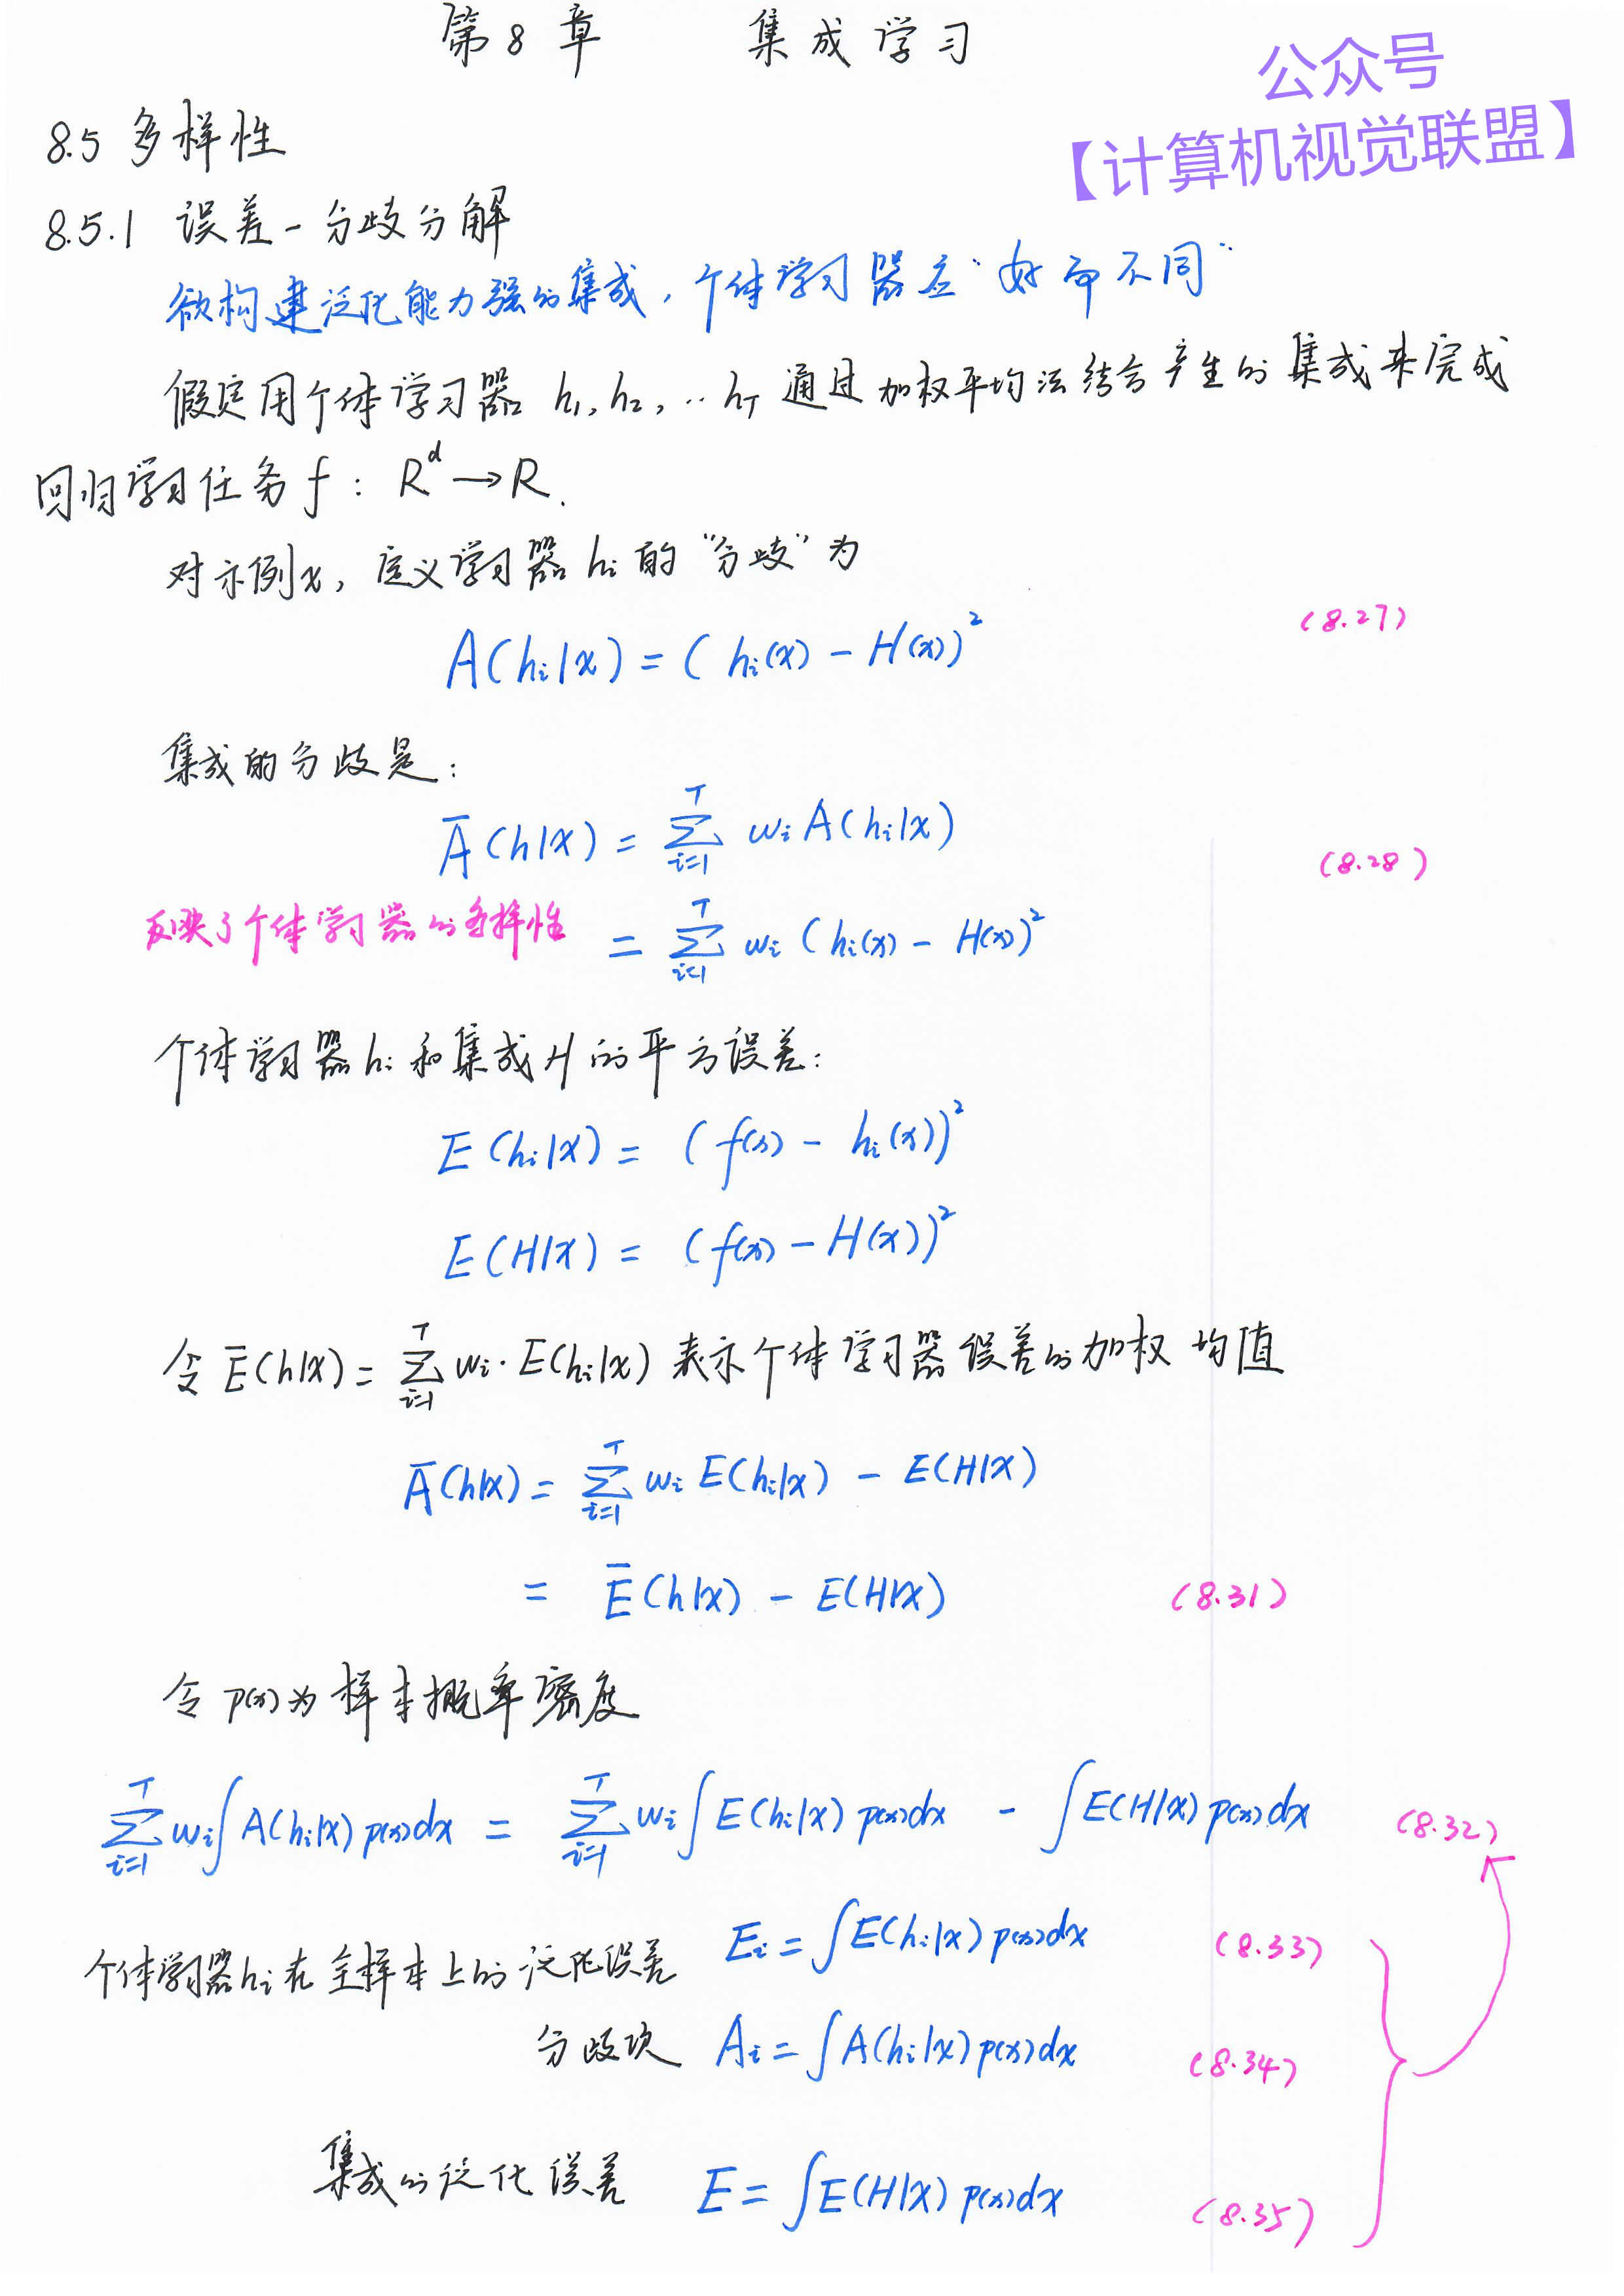 第8章 集成学习
公众号
【计算机视觉联盟】
8.5 多样性
8.5.1 误差-分歧分解
欲构建泛化能力强的集成，个体学习器应"好而不同"
假定用个体学习器 h₁, h₂, ‥ h_T 通过加权平均法结合产生的集成来完成
回归学习任务 f : R^d → R.
对示例x, 定义学习器 hᵢ 的 "分歧" 为
A(hᵢ|x) = ( hᵢ(x) - H(x))² (8.27)
集成的分歧是：
Ā(h|x) = ∑_{i=1}^{T} wᵢ A(hᵢ|x) (8.28)
反映了个体学习器的多样性 = ∑_{i=1}^{T} wᵢ (hᵢ(x) - H(x))²
个体学习器hᵢ和集成H的平方误差：
E(hᵢ|x) = (f(x) - hᵢ(x))²
E(H|x) = (f(x) - H(x))²
令 Ē(h|x) = ∑_{i=1}^{T} wᵢ·E(hᵢ|x) 表示个体学习器误差的加权均值
Ā(h|x) = ∑_{i=1}^{T} wᵢ E(hᵢ|x) - E(H|x)
= Ē(h|x) - E(H|x) (8.31)
令 p(x)为样本概率密度
∑_{i=1}^{T} wᵢ∫A(hᵢ|x) p(x)dx = ∑_{i=1}^{T} wᵢ∫E(hᵢ|x) p(x)dx - ∫E(H|x) p(x)dx (8.32)
个体学习器hᵢ在全样本上的泛化误差 Eᵢ = ∫E(hᵢ|x) p(x)dx (8.33)
分歧项 Aᵢ = ∫A(hᵢ|x) p(x)dx (8.34)
集成的泛化误差 E = ∫E(H|x) p(x)dx (8.35)